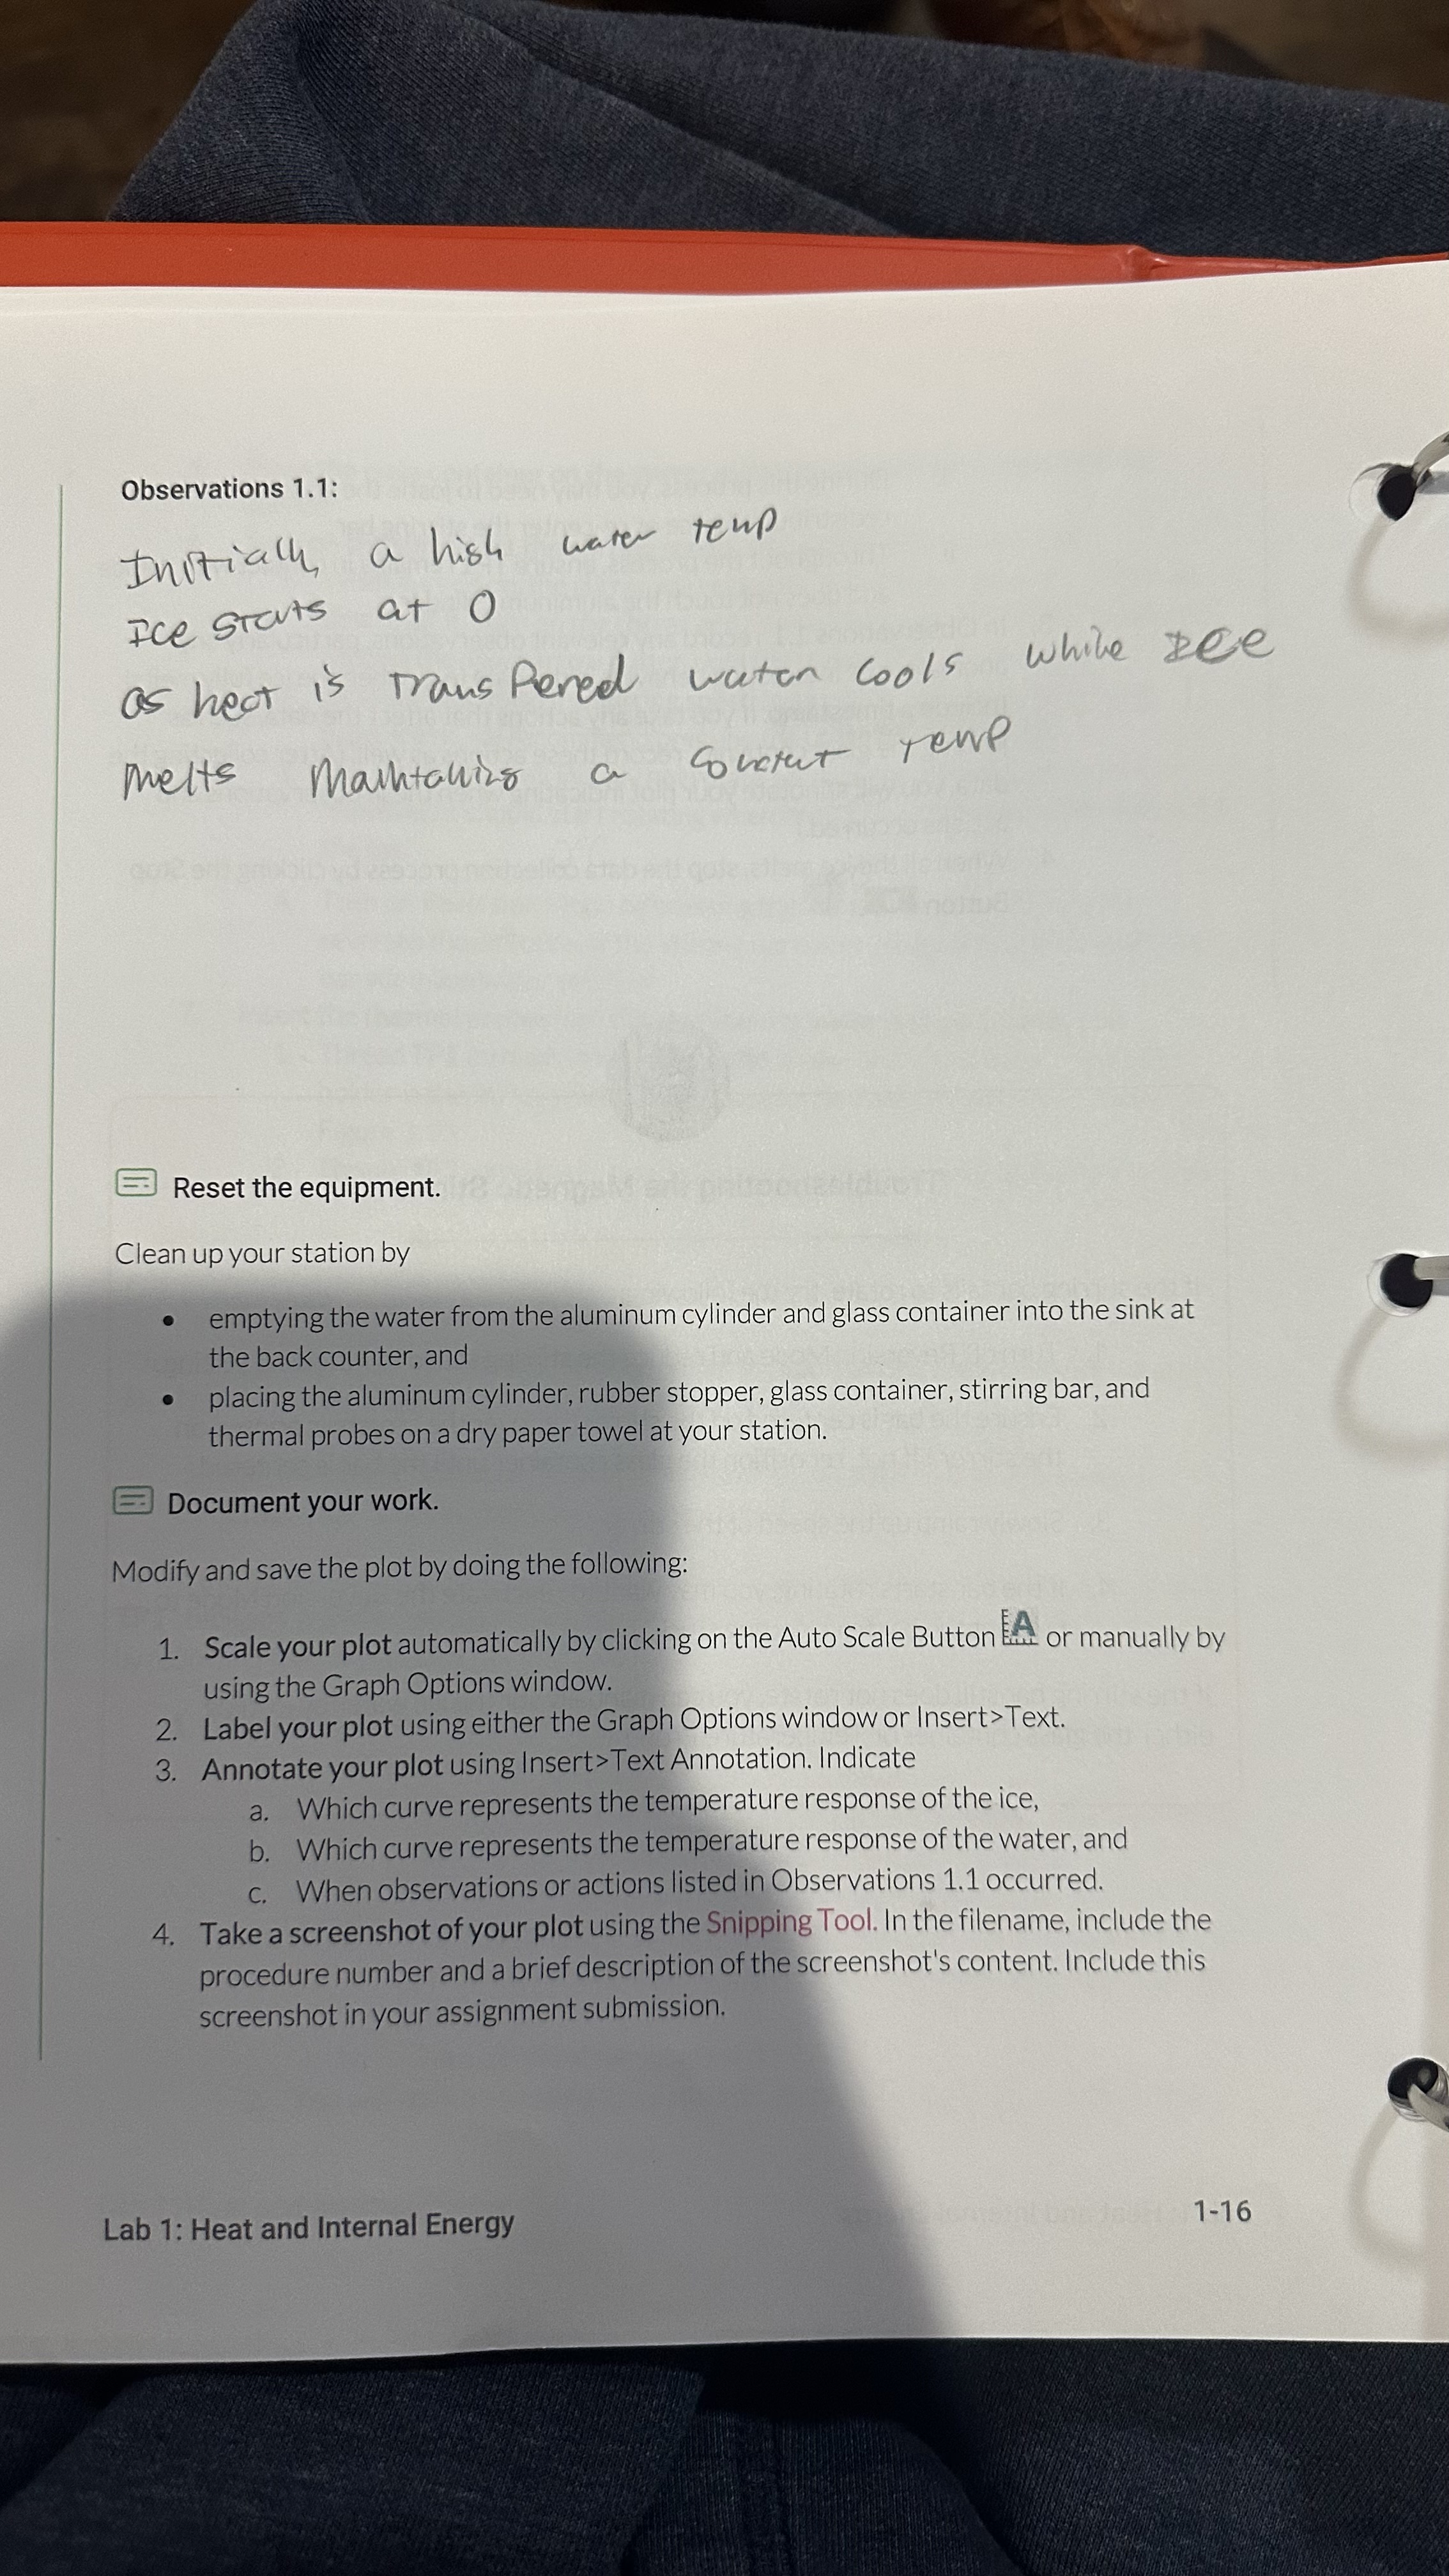 Observations 1.1:
Initially, a high water temp
Ice starts at 0
as heat is transfered water cools while Ice
melts maintaining a temp
Reset the equipment.
Clean up your station by
• emptying the water from the aluminum cylinder and glass container into the sink at
the back counter, and
• placing the aluminum cylinder, rubber stopper, glass container, stirring bar, and
thermal probes on a dry paper towel at your station.
Document your work.
Modify and save the plot by doing the following:
1. Scale your plot automatically by clicking on the Auto Scale Button A or manually by
using the Graph Options window.
2. Label your plot using either the Graph Options window or Insert>Text.
3. Annotate your plot using Insert>Text Annotation. Indicate
a. Which curve represents the temperature response of the ice,
b. Which curve represents the temperature response of the water, and
c. When observations or actions listed in Observations 1.1 occurred.
4. Take a screenshot of your plot using the Snipping Tool. In the filename, include the
procedure number and a brief description of the screenshot's content. Include this
screenshot in your assignment submission.
Lab 1: Heat and Internal Energy
1-16